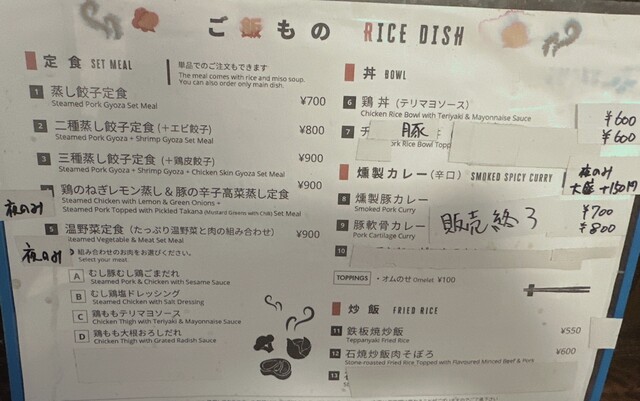 ご飯もの RICE DISH
定食 SET MEAL
単品でのご注文もできます
The meal comes with rice and miso soup.
You can also order only main dish.
1 蒸し餃子定食 ¥700
Steamed Pork Gyoza Set Meal
2 二種蒸し餃子定食(+エビ餃子) ¥800
Steamed Pork Gyoza + Shrimp Gyoza Set Meal
3 三種蒸し餃子定食(+鶏皮餃子) ¥900
Steamed Pork Gyoza + Shrimp Gyoza + Chicken Skin Gyoza Set Meal
鶏のねぎレモン蒸し&豚の辛子高菜蒸し定食 ¥900
夜のみ
Steamed Chicken with Lemon & Green Onions +
Steamed Pork Topped with Pickled Takana (Mustard Greens with Chili) Set Meal
5 温野菜定食(たっぷり温野菜と肉の組み合わせ) ¥900
Steamed Vegetable & Meat Set Meal
夜のみ
組み合わせのお肉をお選びください。
Select your meat.
A むし豚むし鶏ごまだれ
Steamed Pork & Chicken with Sesame Sauce
B むし鶏塩ドレッシング
Steamed Chicken with Salt Dressing
C 鶏ももテリマヨソース
Chicken Thigh with Teriyaki & Mayonnaise Sauce
D 鶏もも大根おろしだれ
Chicken Thigh with Grated Radish Sauce
丼 BOWL
6 鶏丼(テリマヨソース) ¥600
Chicken Rice Bowl with Teriyaki & Mayonnaise Sauce
7 豚 ¥600
Rice Bowl
燻製カレー(辛口) SMOKED SPICY CURRY
夜のみ
大盛+150円
8 燻製豚カレー ¥700
Smoked Pork Curry
9 豚軟骨カレー ¥800
Pork Cartilage Curry
販売終了
10
TOPPINGS ・オムのせ Omelet ¥100
炒飯 FRIED RICE
11 鉄板焼炒飯 ¥550
Teppanyaki Fried Rice
12 石焼炒飯肉そぼろ ¥600
Stone-roasted Fried Rice Topped with Flavoured Minced Beef & Pork
13